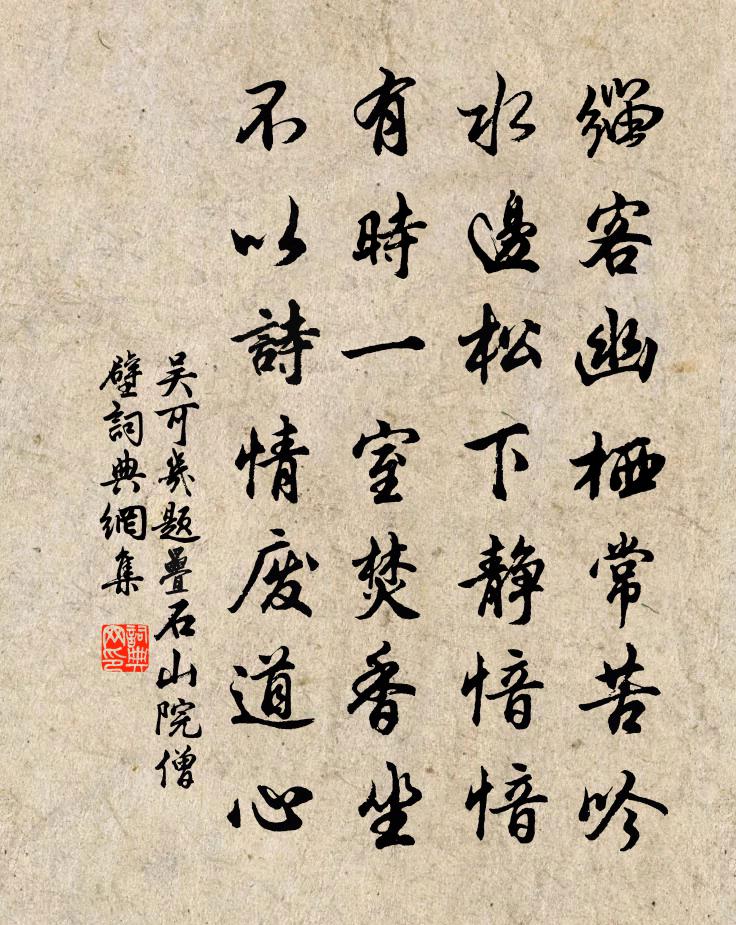 緇客幽栖常苦吟
水邊松下静愔愔
有時一室焚香坐
不以詩情废道心
吴可幾題疊石山院僧
壁詞典網集
詞典
网印